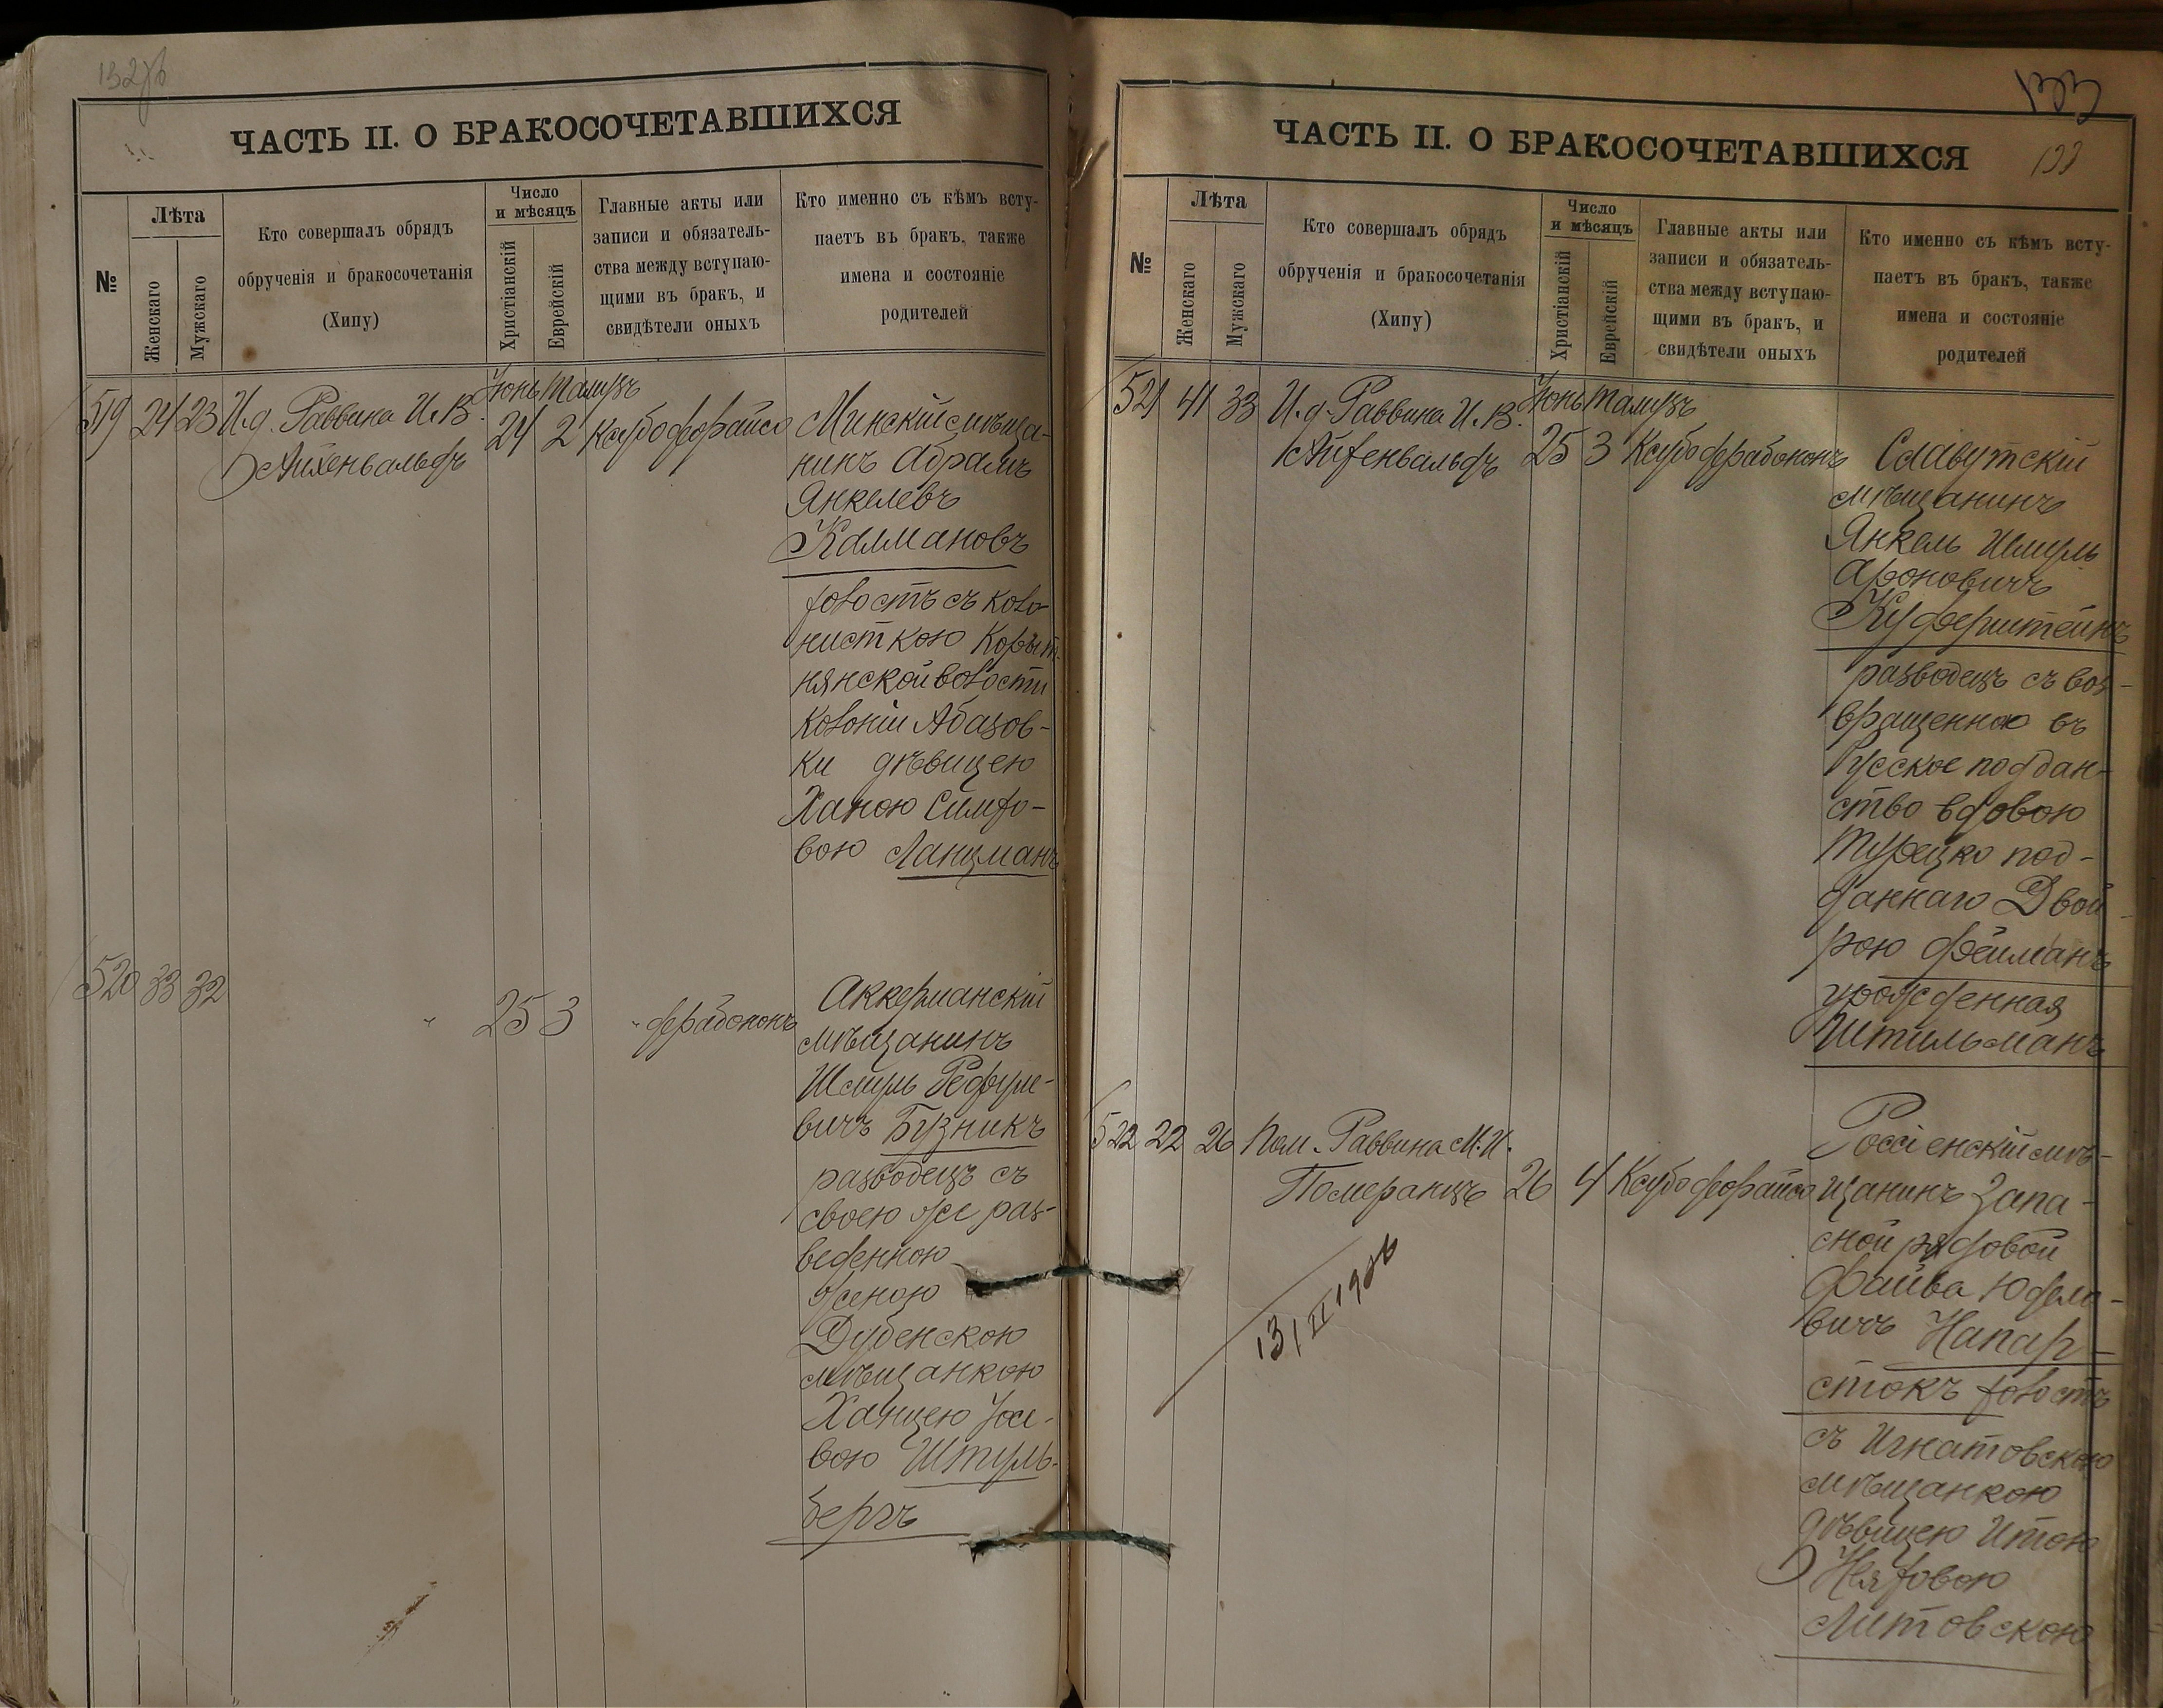 132об
ЧАСТЬ II. О БРАКОСОЧЕТАВШИХСЯ
№
Лѣта
Женскаго
Мужскаго
Кто совершалъ обрядъ
обрученія и бракосочетанія
(Хипу)
Число
и мѣсяцъ
Христіанскій
Еврейскій
Главные акты или
записи и обязатель-
ства между вступаю-
щими въ бракъ, и
свидѣтели оныхъ
Кто именно съ кѣмъ всту-
паетъ въ бракъ, также
имена и состояніе
родителей
Іюнь Тамузъ
519 24 23 И.д. Раввина И. В.
Айхенвальдъ
24 2 Ксубо
Минскій мѣща-
нинъ Абрамъ
Янкелевъ
Калмановъ
холостъ съ коло-
нисткою Корыт-
нянской волости
колоніи Абазов-
ки дѣвицею
Ханою Симхо-
вою Ланцманъ
520 33 32
" 25 3 "
Аккерманскій
мѣщанинъ
Шмуль Рефуле-
вичъ Бузникъ
разводецъ съ
своею же раз-
веденною
женою
Дубенскою
мѣщанкою
Ханцею Іосе-
вою Штуль-
бергъ
133
133
ЧАСТЬ II. О БРАКОСОЧЕТАВШИХСЯ
№
Лѣта
Женскаго
Мужскаго
Кто совершалъ обрядъ
обрученія и бракосочетанія
(Хипу)
Число
и мѣсяцъ
Христіанскій
Еврейскій
Главные акты или
записи и обязатель-
ства между вступаю-
щими въ бракъ, и
свидѣтели оныхъ
Кто именно съ кѣмъ всту-
паетъ въ бракъ, также
имена и состояніе
родителей
Іюнь Тамузъ
521 41 33 И.д. Раввина И. В.
Айхенвальдъ
25 3 Ксубо
Славутскій
мѣщанинъ
Янкель Шмуль
Ароновичъ
Куферштейнъ
разводецъ съ воз-
вращенною въ
Русское поддан-
ство вдовою
Турецко под-
даннаго Двой-
рою Фейманъ
урожденная
Штильманъ
522 22 26 Пом. Раввина М. И.
Померанцъ
26 4 Ксубо
Россіенскій мѣ-
щанинъ запа-
сной рядовой
Файва Юделе-
вичъ Напар-
стокъ холостъ
съ Игнатовскою
мѣщанкою
дѣвицею Итою
Литовскою
13/II 1906